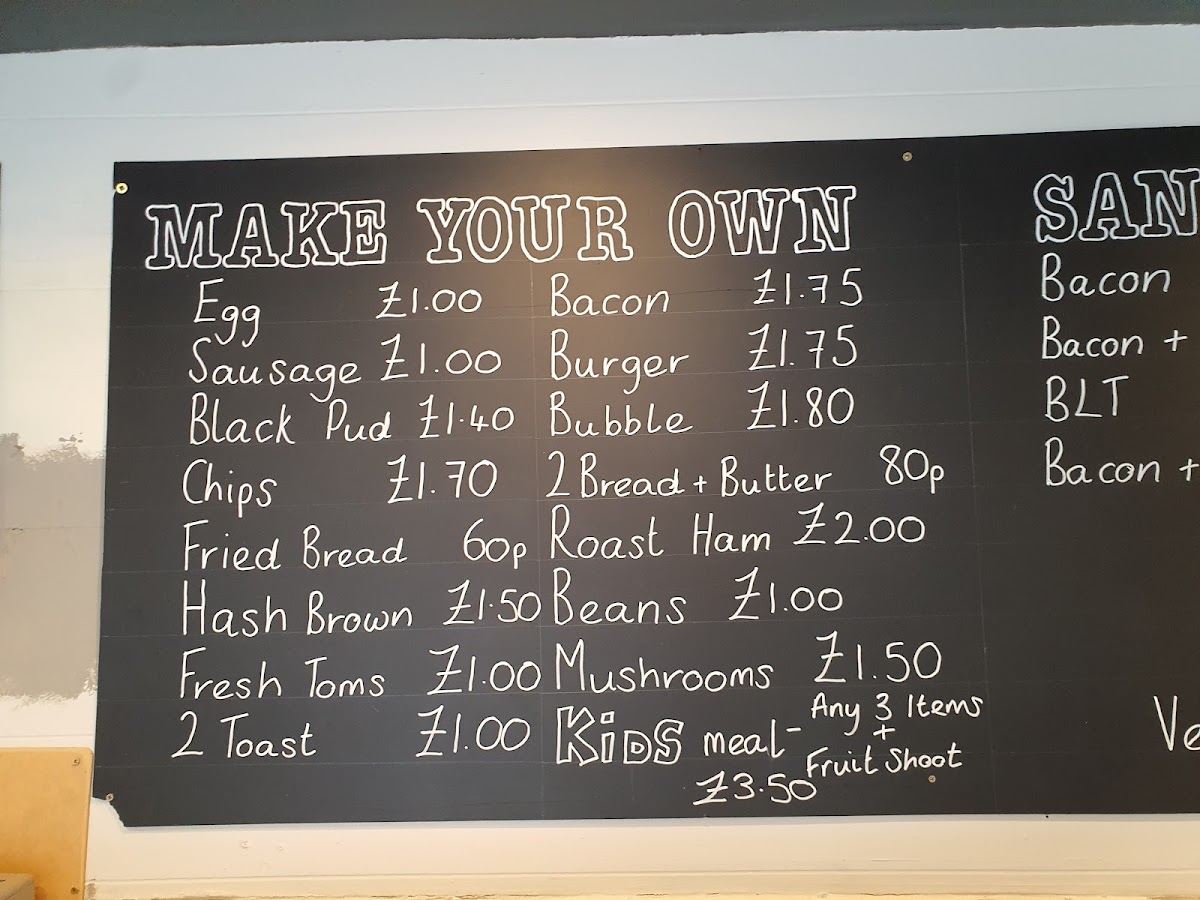 MAKE YOUR OWN
Egg £1.00
Sausage £1.00
Black Pud £1.40
Chips £1.70
Fried Bread 60p
Hash Brown £1.50
Fresh Toms £1.00
2 Toast £1.00
Bacon £1.75
Burger £1.75
Bubble £1.80
2 Bread + Butter 80p
Roast Ham £2.00
Beans £1.00
Mushrooms £1.50
KiDS meal - Any 3 Items
+
Fruit Shoot
£3.50
SAN
Bacon
Bacon +
BLT
Bacon +
Ve